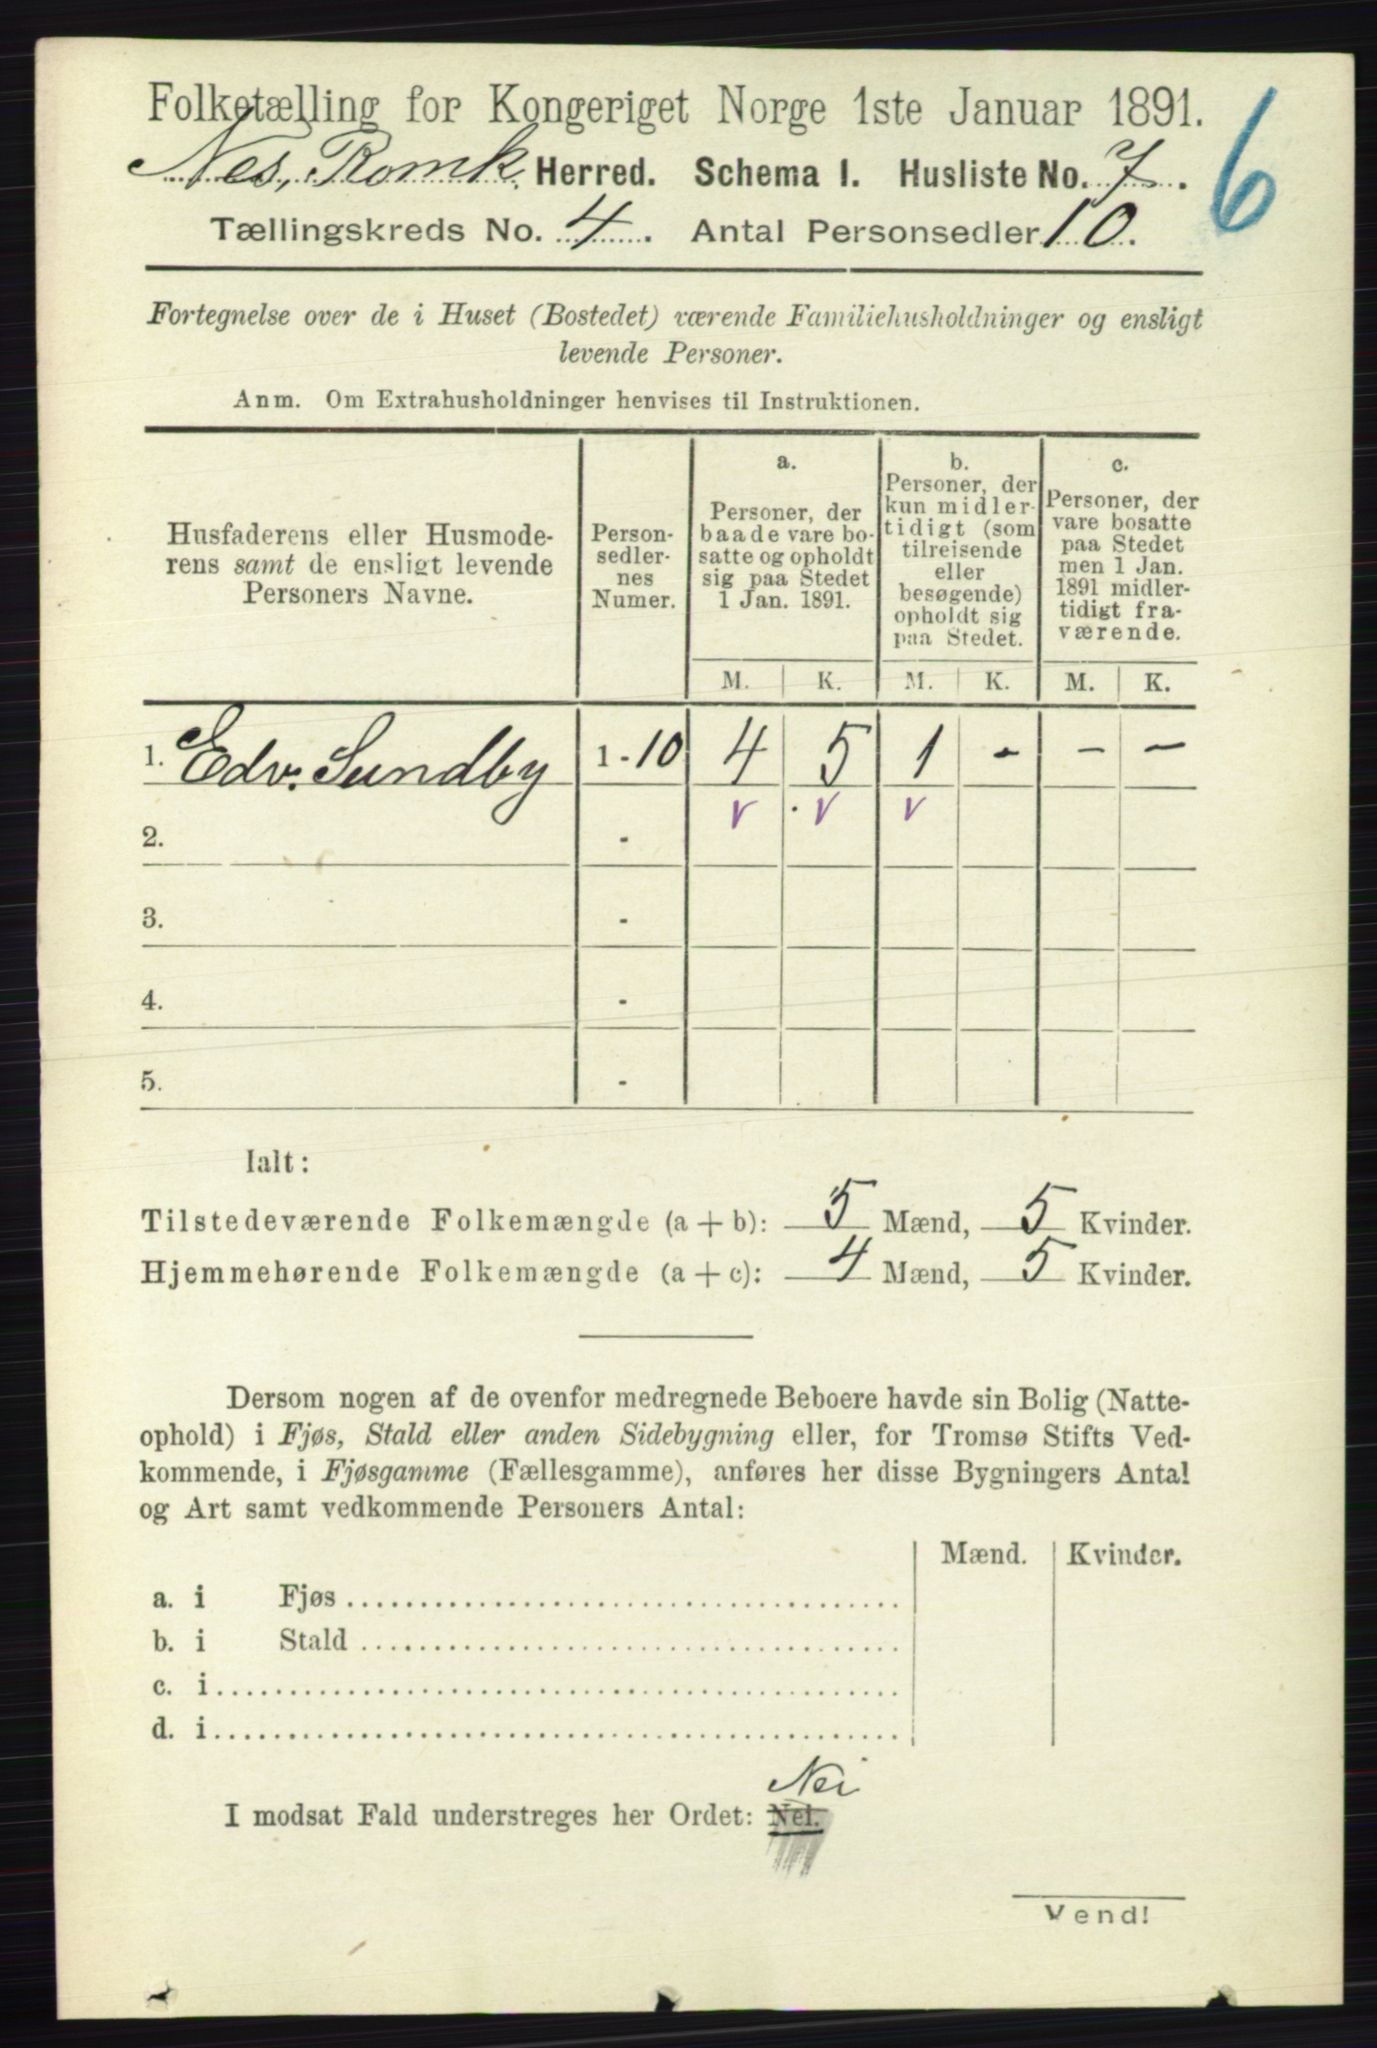 Folketælling for Kongeriget Norge 1ste Januar 1891.
6
Nes, Romk. Herred. Schema I. Husliste No. 7.
Tællingskreds No. 4. Antal Personsedler 10.
Fortegnelse over de i Huset (Bostedet) værende Familiehusholdninger og ensligt
levende Personer.
Anm. Om Extrahusholdninger henvises til Instruktionen.
Husfaderens eller Husmode-
rens samt de ensligt levende
Personers Navne.
Person-
sedler-
nes
Numer.
a.
Personer, der
baade vare bo-
satte og opholdt
sig paa Stedet
1 Jan. 1891.
b.
Personer, der
kun midler-
tidigt (som
tilreisende
eller
besøgende)
opholdt sig
paa Stedet.
c.
Personer, der
vare bosatte
paa Stedet
men 1 Jan.
1891 midler-
tidigt fra-
værende.
M. K. M. K. M. K.
1. Edv. Sundby 1 - 10 4 5 1 - - -
v v v
2. -
3. -
4. -
5. -
Ialt:
Tilstedeværende Folkemængde (a + b): 5 Mænd, 5 Kvinder.
Hjemmehørende Folkemængde (a + c): 4 Mænd, 5 Kvinder.
Dersom nogen af de ovenfor medregnede Beboere havde sin Bolig (Natte-
ophold) i Fjøs, Stald eller anden Sidebygning eller, for Tromsø Stifts Ved-
kommende, i Fjøsgamme (Fællesgamme), anføres her disse Bygningers Antal
og Art samt vedkommende Personers Antal:
Mænd. Kvinder.
a. i Fjøs
b. i Stald
c. i
d. i
Nei
I modsat Fald understreges her Ordet: Nei.
Vend!